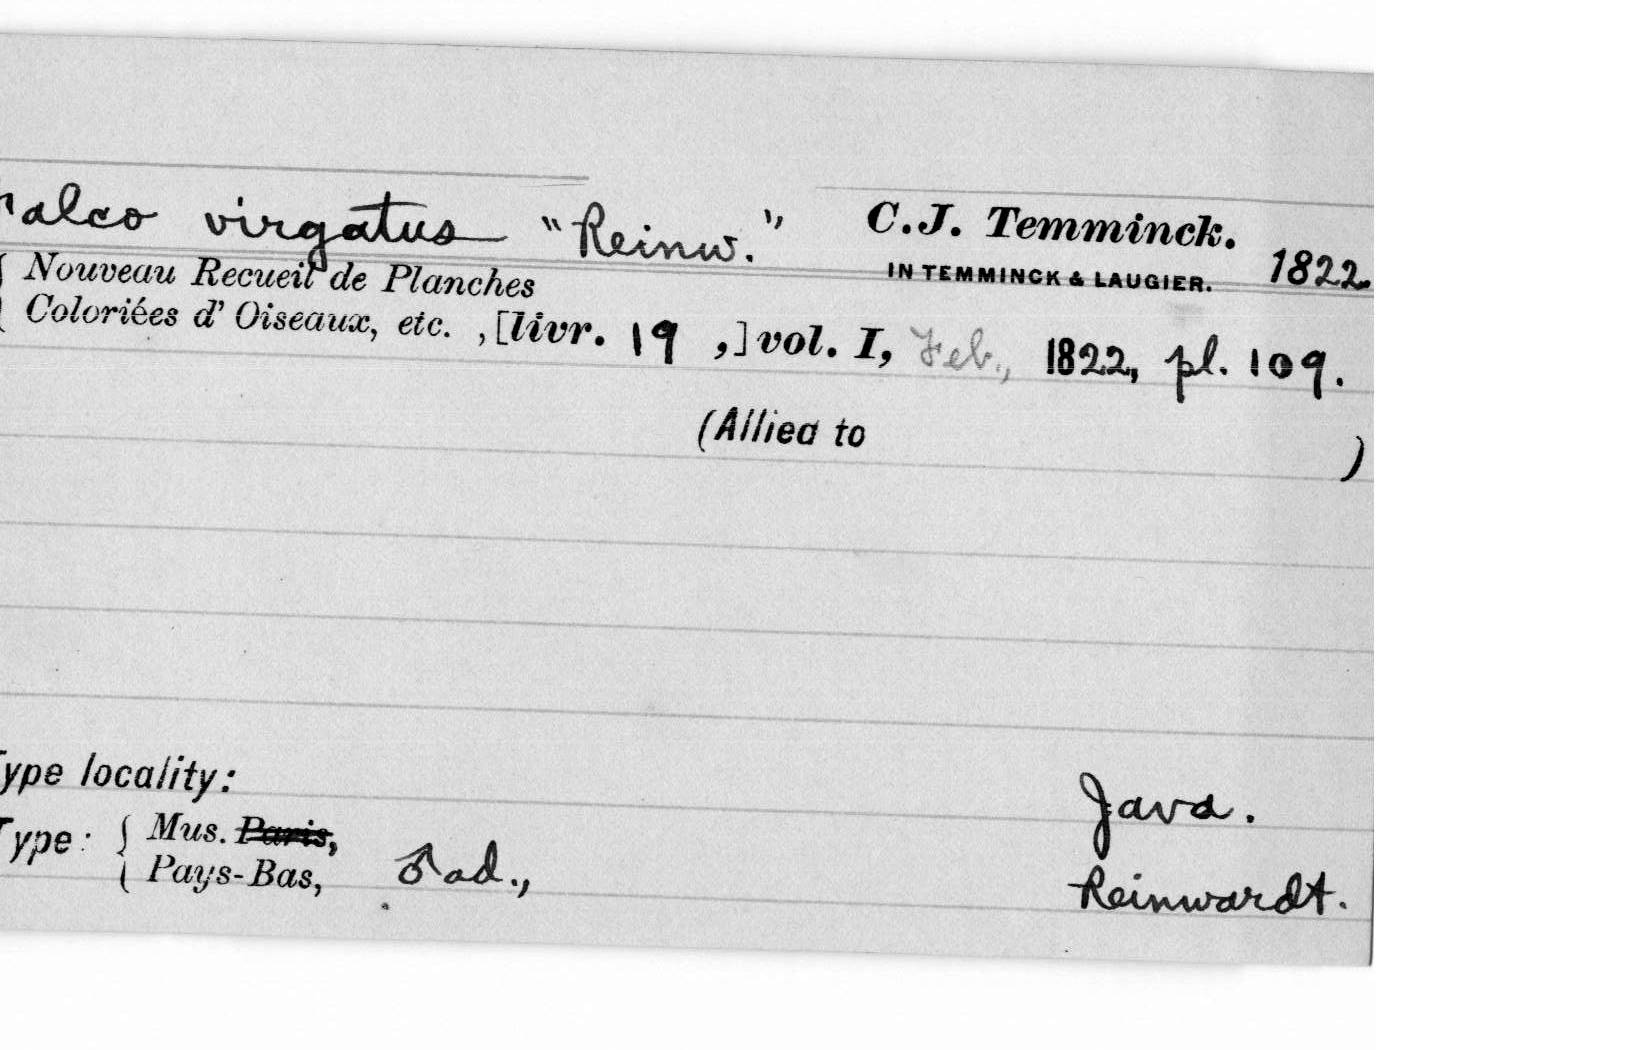 Falco virgatus "Reinw." C.J. Temminck.
IN TEMMINCK & LAUGIER. 1822.
{ Nouveau Recueil de Planches
{ Coloriées d' Oiseaux, etc. , [livr. 19 ,] vol. I, Feb., 1822, pl. 109.
(Allied to )
Type locality: Java.
Type: { Mus. Paris,
{ Pays-Bas, ♂ ad., Reinwardt.